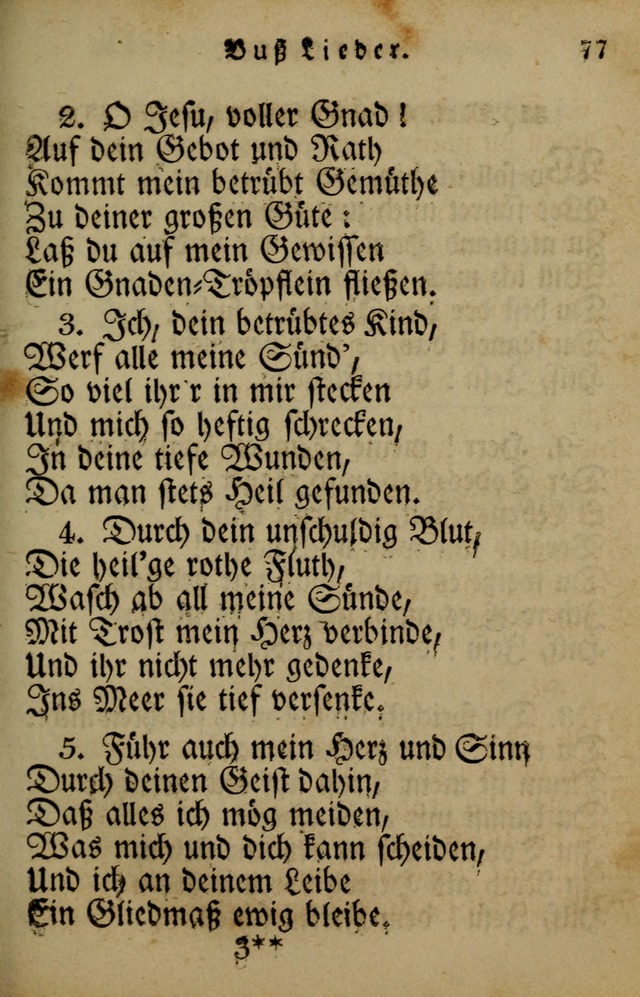 Buß Lieder. 77
2. O Jesu, voller Gnad!
Auf dein Gebot und Rath
Kommt mein betrübt Gemüthe
Zu deiner großen Güte:
Laß du auf mein Gewissen
Ein Gnaden-Tröpflein fließen.
3. Ich, dein betrübtes Kind,
Werf alle meine Sünd',
So viel ihr'r in mir stecken
Und mich so heftig schrecken,
In deine tiefe Wunden,
Da man stets Heil gefunden.
4. Durch dein unschuldig Blut,
Die heil'ge rothe Fluth,
Wasch ab all meine Sünde,
Mit Trost mein Herz verbinde,
Und ihr nicht mehr gedenke,
Ins Meer sie tief versenke.
5. Führ auch mein Herz und Sinn
Durch deinen Geist dahin,
Daß alles ich mög meiden,
Was mich und dich kann scheiden,
Und ich an deinem Leibe
Ein Gliedmaß ewig bleibe.
3**